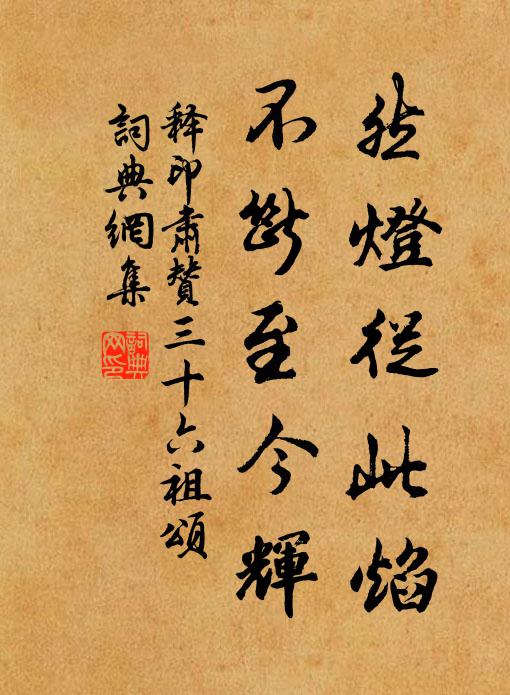 然燈從此焰
不斷至今輝
释印肅贊三十六祖頌
詞典網集
詞典
网印